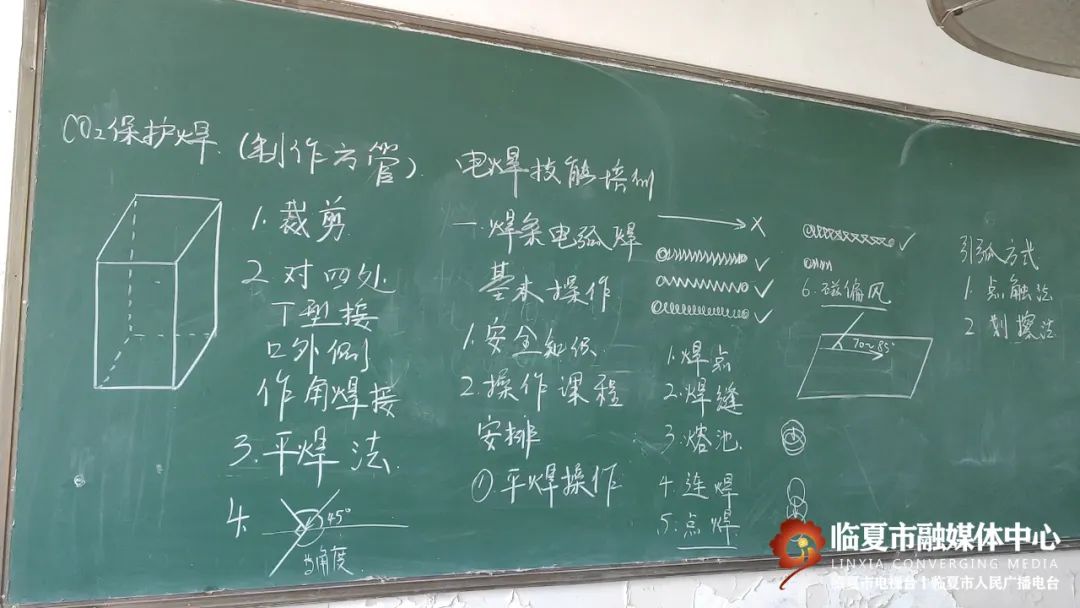 CO2保护焊.(制作方管).
1.裁剪
2.对四处
丁型接
口外侧
作角焊接
3.平焊法.
4.
45°
角度
电焊技能培训
一.焊条电弧焊
基本操作
1.安全知识
2.操作课程
安排
①平焊操作
1.焊点
2.焊缝
3.熔池
4.连焊
5.点焊
6.磁偏风
70~85°
引弧方式
1.点触法
2.划擦法
临夏市融媒体中心
LINXIA CONVERGING MEDIA
临夏市电视台|临夏市人民广播电台